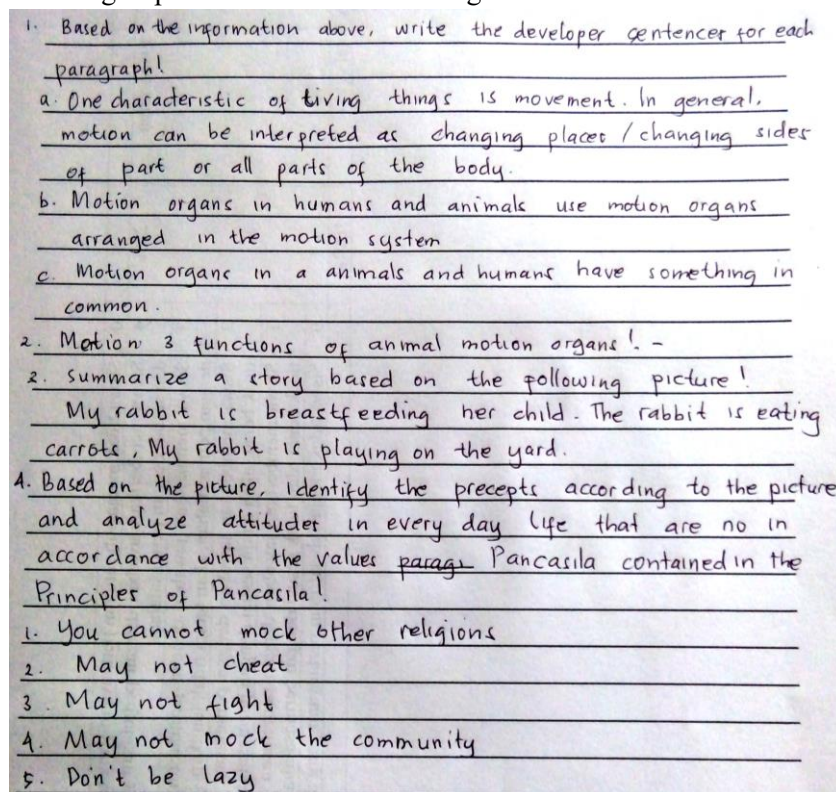 1. Based on the information above, write the developer sentences for each
paragraph!
a. One characteristic of living things is movement. In general,
motion can be interpreted as changing places / changing sides
of part or all parts of the body.
b. Motion organs in humans and animals use motion organs
arranged in the motion system
c. Motion organs in a animals and humans have something in
common.
2. Motion 3 functions of animal motion organs! -
2. summarize a story based on the following picture!
My rabbit is breastfeeding her child. The rabbit is eating
carrots, My rabbit is playing on the yard.
4. Based on the picture, identify the precepts according to the picture
and analyze attitudes in every day life that are no in
accordance with the values Pancasila contained in the
Principles of Pancasila!
1. You cannot mock other religions
2. May not cheat
3. May not fight
4. May not mock the community
5. Don't be lazy